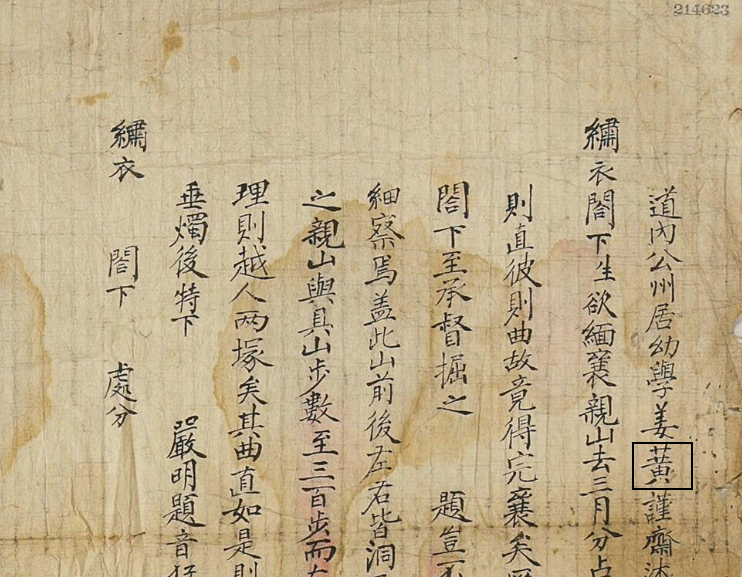 214623
道內公州居幼學姜黃謹齋沐
繡衣閤下生欲緬襄親山去三月分占
則直彼則曲故竟得完襄矣
閤下至承督掘之 題豈不
細察焉盖此山前後左右皆洞
之親山與具山步數至三百步而
理則越人两塚矣其曲直如是則
垂燭後特下 嚴明題音
繡衣 閤下 處分